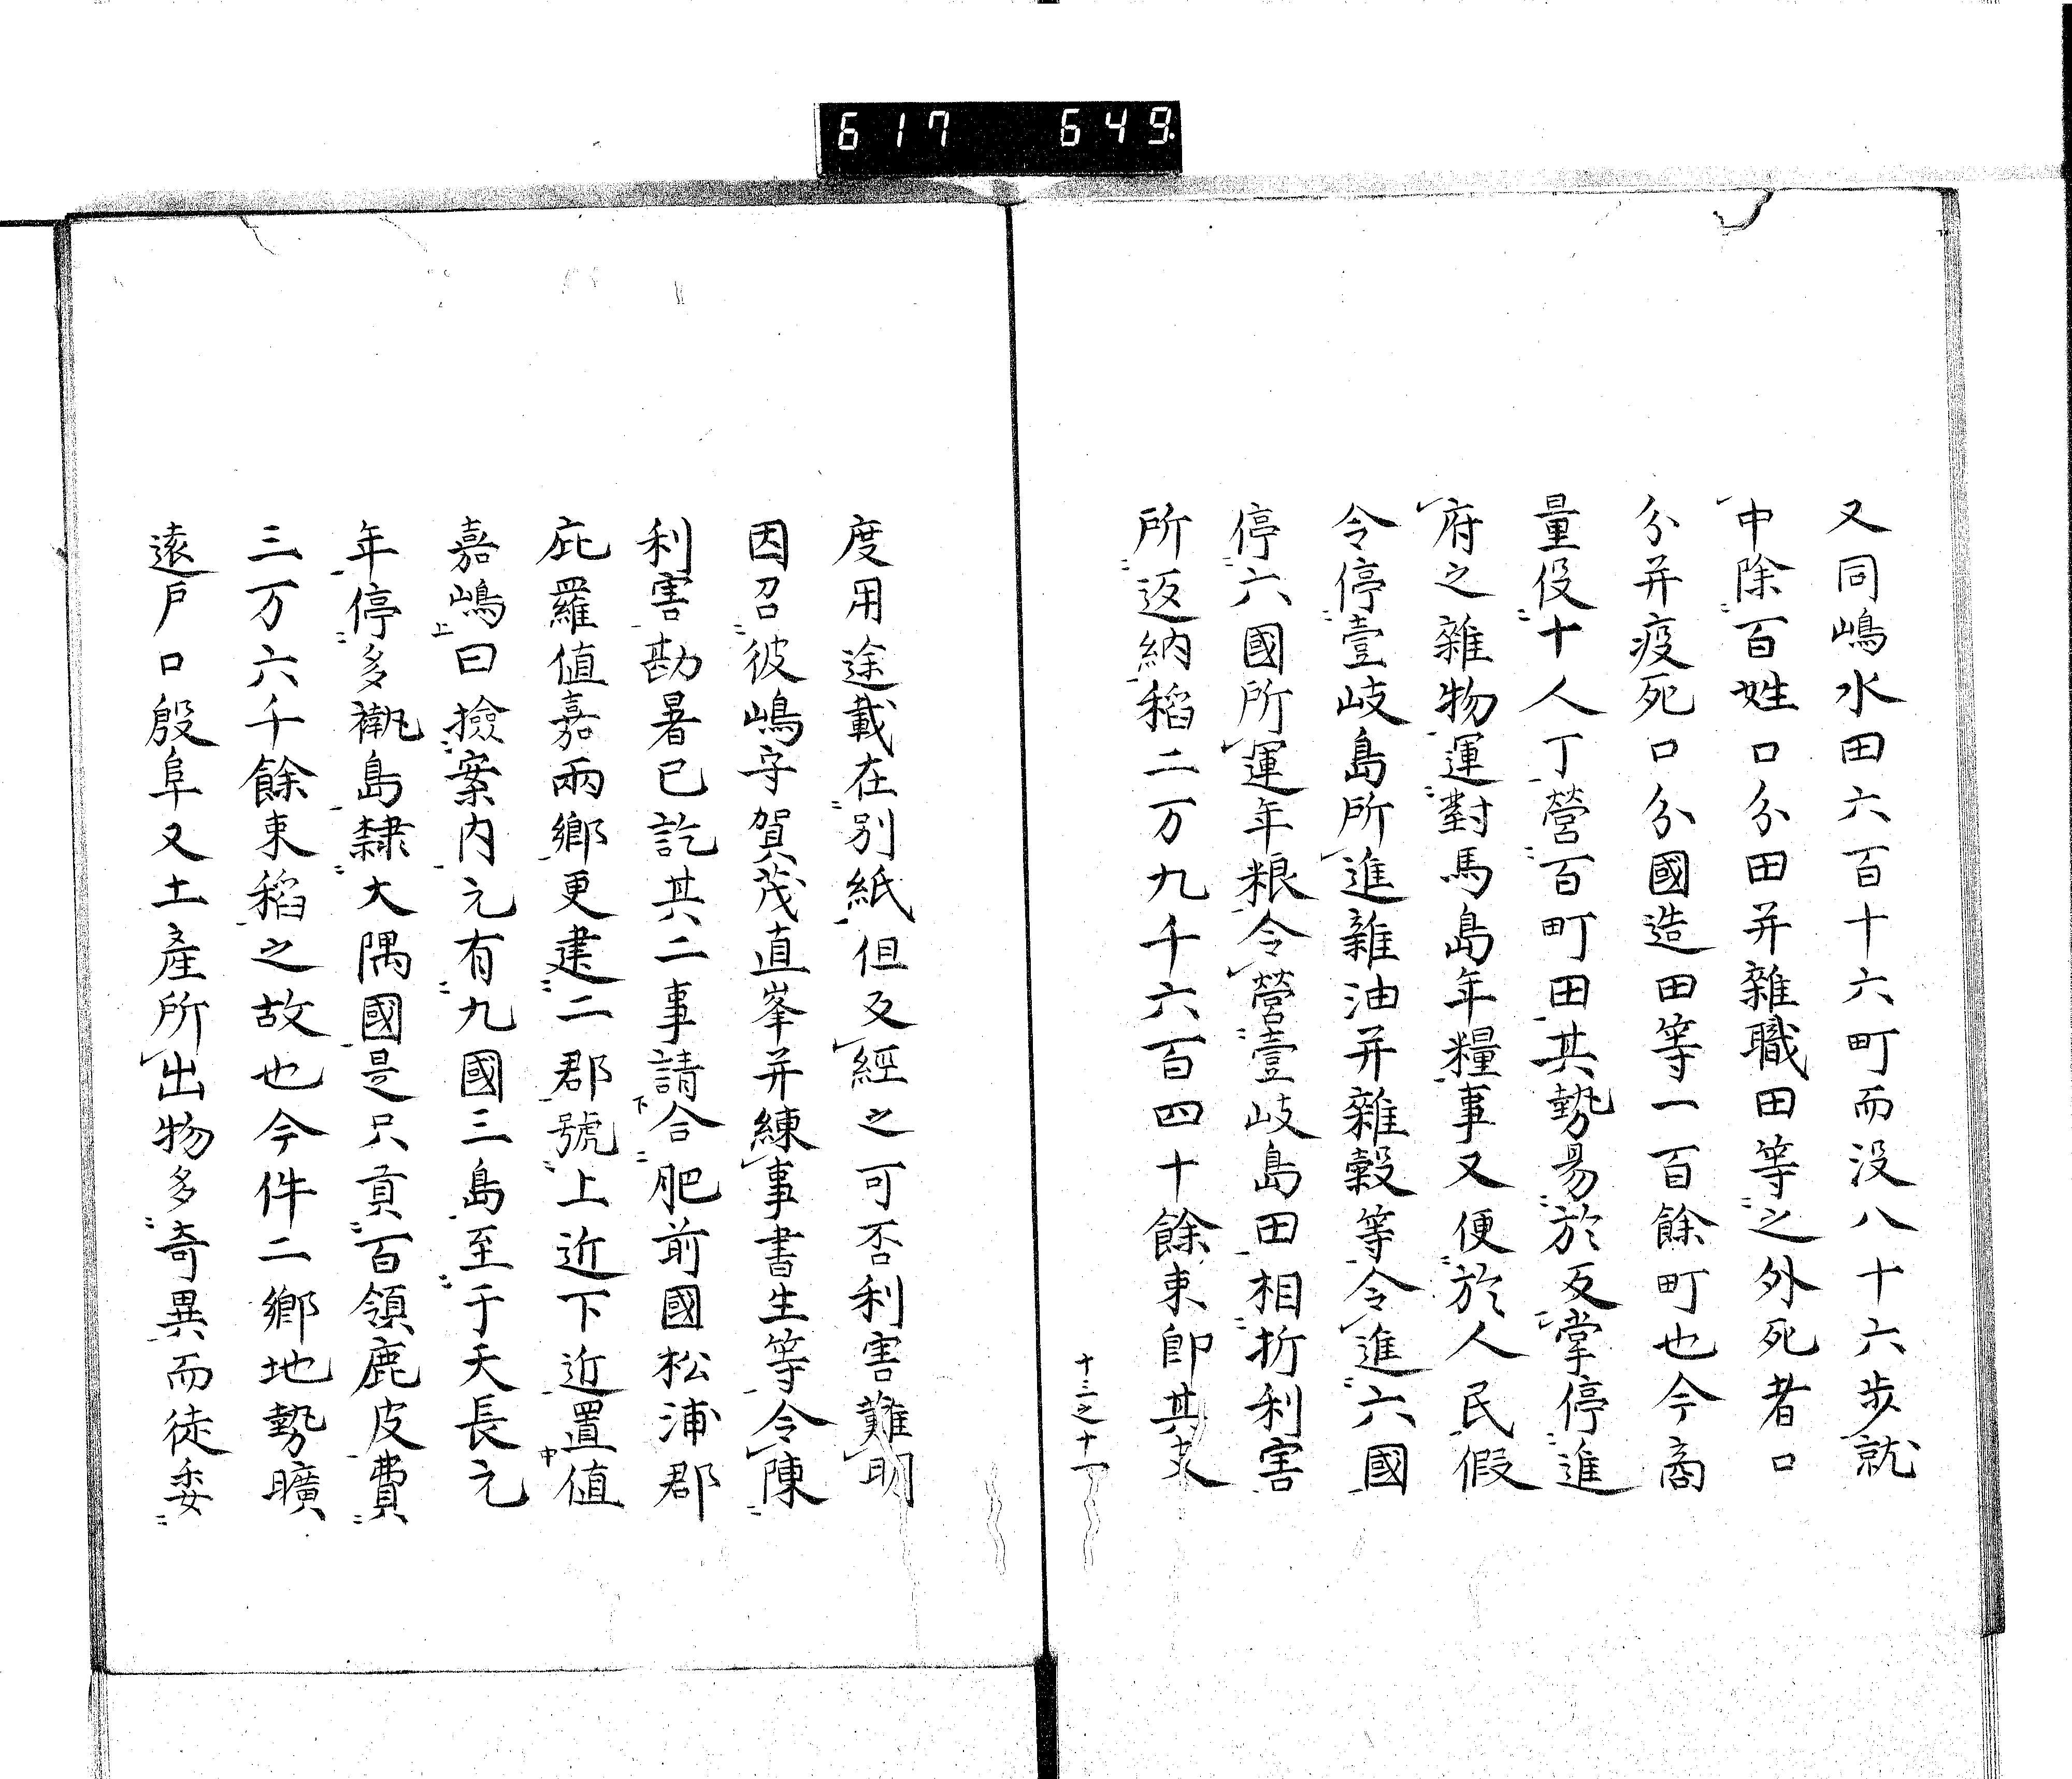 617 649
又同嶋水田六百十六町而没八十六步就
中除百姓口分田并雜職田等之外死者口
分并疫死口分國造田等一百餘町也今商
量役十人丁營百町田其勢易於反掌停進
府之雜物運對馬島年糧事又便於人民假
令停壹岐島所進雜油并雜穀等令進六國
停六國所運年粮令營壹岐島田相折利害
所返納稻二万九千六百四十餘束即其支
十三之十一
度用途載在別紙但反經之可否利害難明
因召彼嶋守賀茂直峯并練事書生等令陳
利害勘署已訖其二事請合肥前國松浦郡
庇羅值嘉兩鄉更建二郡號上近下近置值
嘉嶋曰撿案內元有九國三島至于天長元
年停多褹島隸大隅國是只貢百領鹿皮費
三万六千餘束稻之故也今件二鄉地勢曠
遠戶口殷阜又土產所出物多奇異而徒委